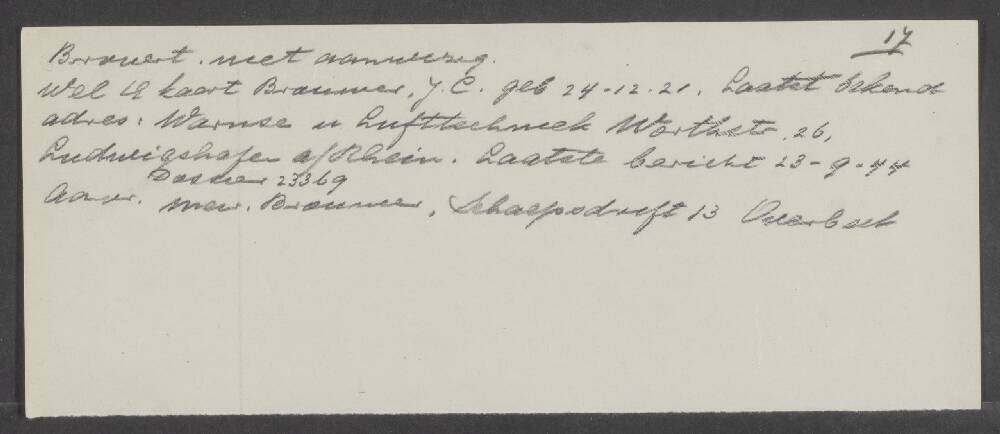 17
Brouert. niet aanwezig.
Wel 19 kaart Brouwer, J.C. geb 24-12-21. Laatst bekend
adres: Warme u Lufttechniek Wörthstr. 26,
Ludwigshafen a/Rhein. Laatste bericht 23-9-44
Dossier 23369
Aanvr. Mevr. Brouwer, Schaepsdrift 13 Overbeek